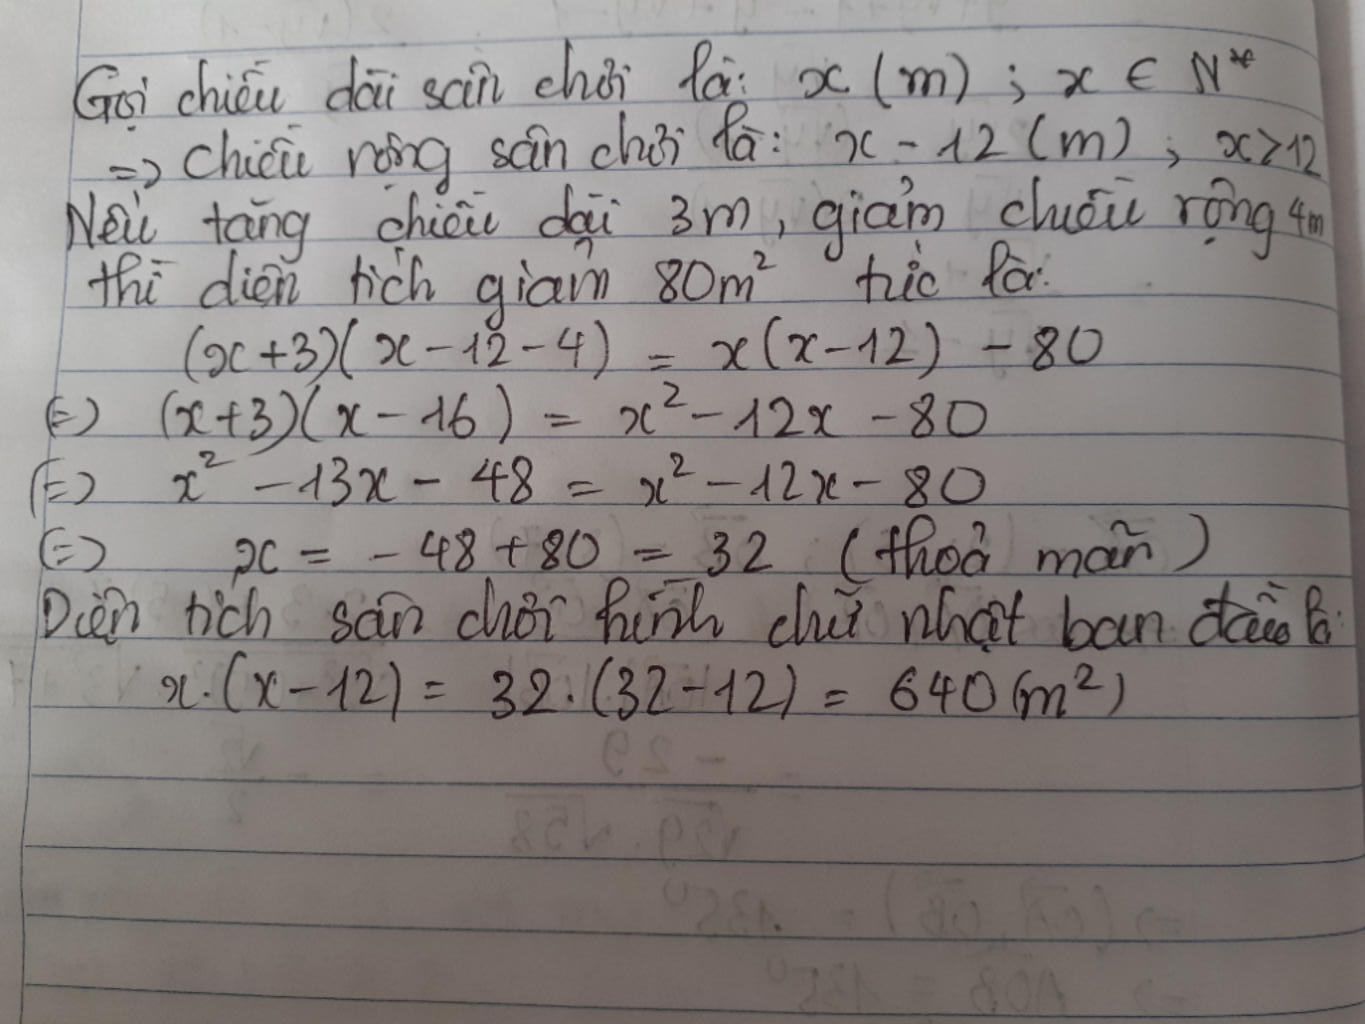 Gọi chiều dài sân chơi là: x (m) ; x ∈ N*
=> Chiều rộng sân chơi là: x - 12 (m) ; x > 12
Nếu tăng chiều dài 3m, giảm chiều rộng 4m
thì diện tích giảm 80m² tức là:
(x+3)(x-12-4) = x(x-12) - 80
(=) (x+3)(x-16) = x² - 12x - 80
(=) x² - 13x - 48 = x² - 12x - 80
(=) x = - 48 + 80 = 32 (thoả mãn)
Diện tích sân chơi hình chữ nhật ban đầu là:
x.(x-12) = 32.(32-12) = 640 (m²)